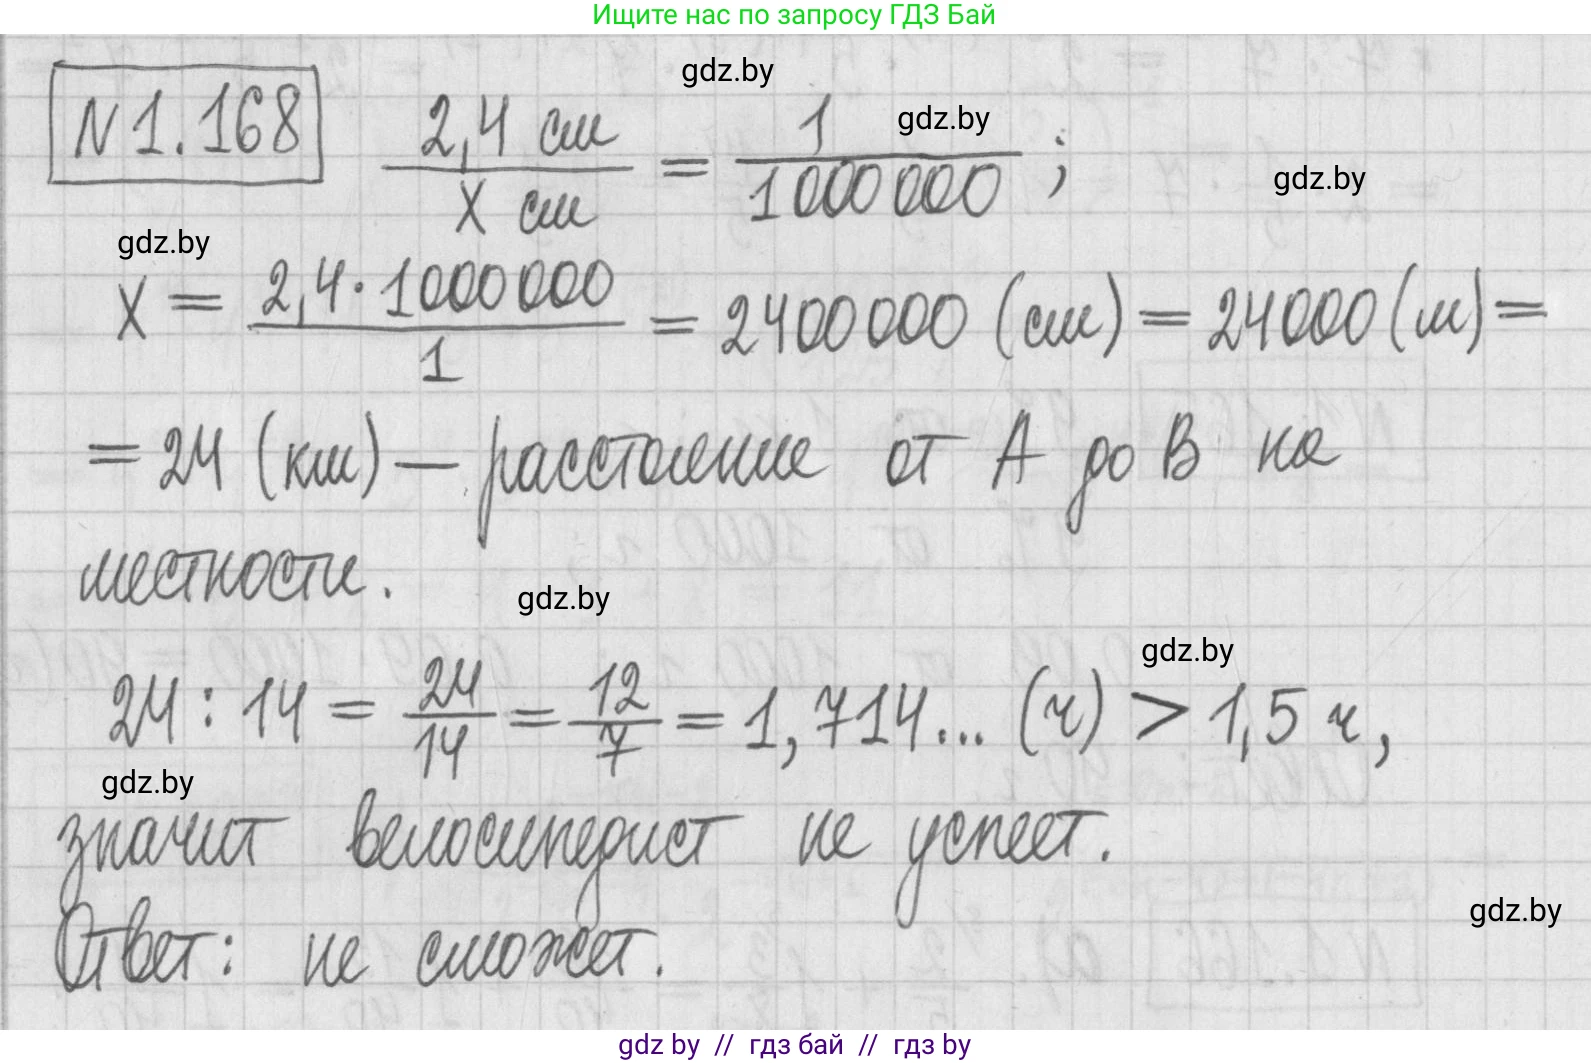 Ищите нас по запросу ГДЗ Бай
gdz.by
N1.168 2,4 см / x см = 1 / 1000000 ;
gdz.by
gdz.by
gdz.by
x = 2,4·1000000 / 1 = 2400000 (см) = 24000 (м) =
= 24 (км) — расстояние от А до В на
местности.
gdz.by
gdz.by
24 : 14 = 24/14 = 12/7 = 1,714... (ч) > 1,5 ч,
gdz.by
значит велосипедист не успеет.
gdz.by
Ответ: не сможет.
gdz by // гдз бай // гдз by